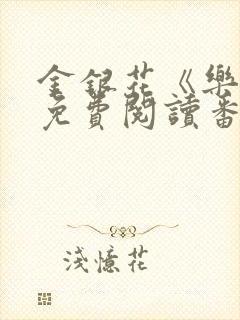 金銀花《樂
免費閱讀番
淺憶花